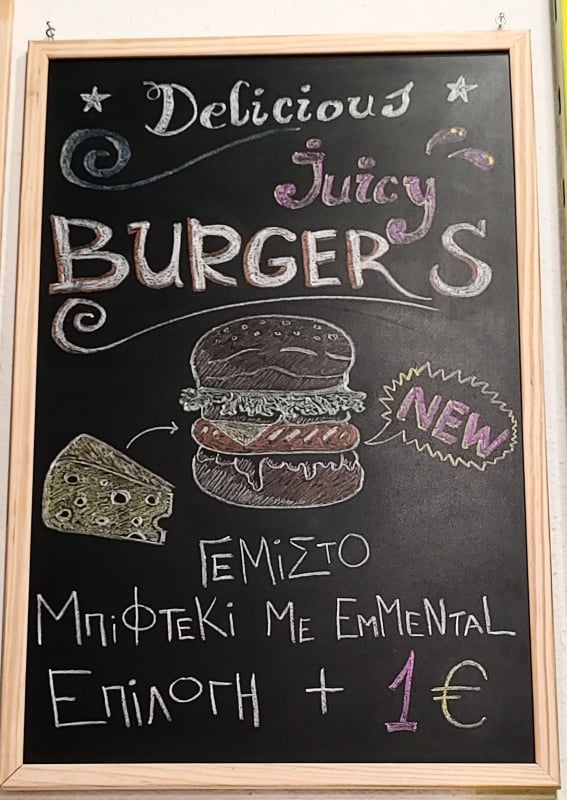 Delicious
juicy
BURGERS
NEW
ΓΕΜΙΣΤΟ
ΜΠΙΦΤΕΚΙ ΜΕ EMMENTAL
ΕΠΙΛΟΓΗ + 1€